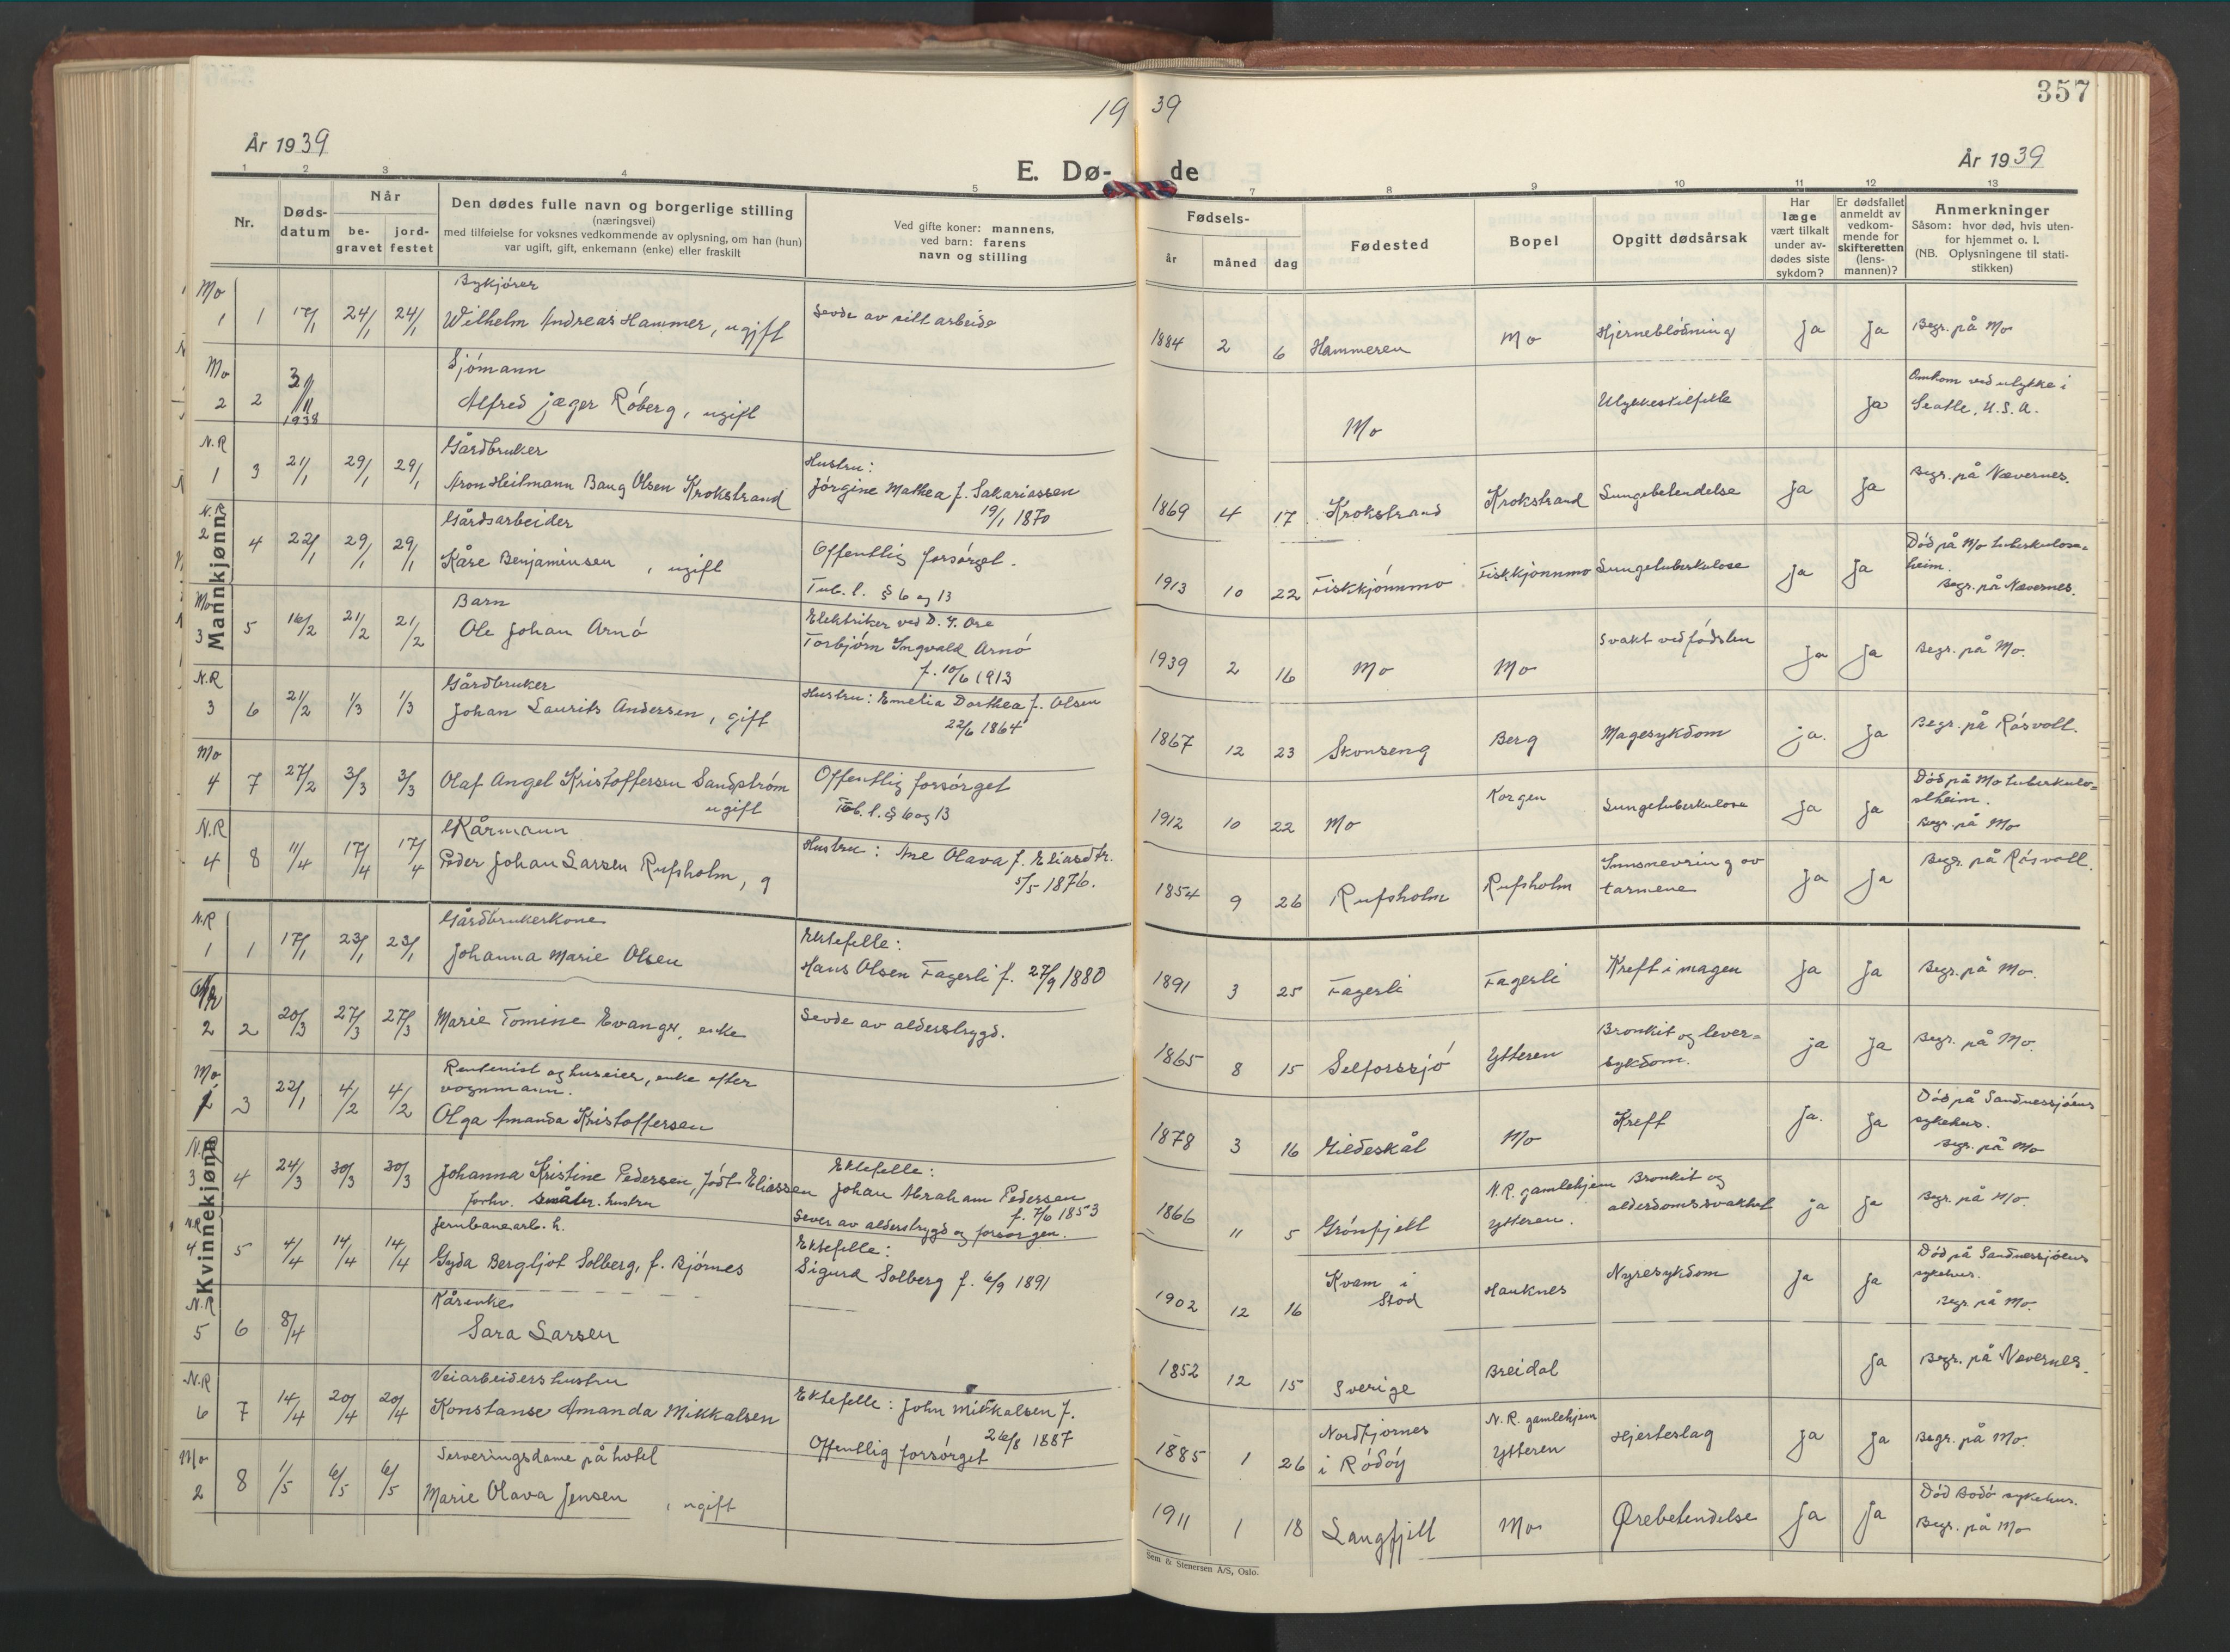 357
19 39
År 1939
År 1939
E. Dø- de
1 2 3 4 5 7 8 9 10 11 12 13
Nr.
Døds-
datum
Når
be-
gravet
jord-
festet
Den dødes fulle navn og borgerlige stilling
(næringsvei)
med tilføielse for voksnes vedkommende av oplysning, om han (hun)
var ugift, gift, enkemann (enke) eller fraskilt
Ved gifte koner: mannens,
ved barn: farens
navn og stilling
Fødsels-
år måned dag
Fødested
Bopel
Opgitt dødsårsak
Har
læge
vært tilkalt
under av-
dødes siste
sykdom?
Er dødsfallet
anmeldt av
vedkom-
mende for
skifteretten
(lens-
mannen)?
Anmerkninger
Såsom: hvor død, hvis uten-
for hjemmet o. l.
(NB. Oplysningene til stati-
stikken)
Mannkjønn
Mo Bykjører
1 1 17/1 24/1 24/1 Wilhelm Andreas Hammer, ugift Levde av sitt arbeide 1884 2 6 Hammeren Mo Hjerneblødning ja ja Begr. på Mo
Mo Sjømann Omkom ved ulykke i
2 2 3/11 1938 Alfred Jæger Røberg, ugift Mo Ulykkestilfelle ja Seatle, U.S.A.
N.R Gårdbruker Hustru:
1 3 21/1 29/1 29/1 Aron Heitmann Baug Olsen Krokstrand Jørgine Mathea f. Sakariassen 19/1 1870 1869 4 17 Krokstrand Krokstrand Lungebetendelse ja ja Begr. på Nævernes.
N.R Gårdsarbeider Offentlig forsørget.
2 4 22/1 29/1 29/1 Kåre Benjaminsen, ugift Tub. l. § 6 og 13 1913 10 22 Fiskkjønnmo Fiskkjønnmo Lungetuberkulose ja ja Død på Mo tuberkulose=
heim.
Begr. på Nævernes.
Mo Barn Elektriker ved D. Y. Ore
3 5 16/2 21/2 21/2 Ole Johan Arnø Torbjørn Ingvald Arnø
f. 10/6 1913 1939 2 16 Mo Mo Svakt ved fødslen ja ja Begr. på Mo.
N.R Gårdbruker Hustru: Emelia Dorthea f. Olsen
3 6 21/2 1/3 1/3 Johan Laurits Andersen, gift 22/6 1864 1867 12 23 Skonseng Berg Magesykdom ja. ja Begr. på Røsvoll.
Mo
4 7 27/2 3/3 3/3 Olaf Angel Kristoffersen Sandstrøm Offentlig forsørget
ugift Tub. l. § 6 og 13 1912 10 22 Mo Korgen Lungetuberkulose ja ja Død på Mo tuberkulo=
seheim.
Begr. på Mo
N.R Kårmann Hustru: Ane Olava f. Eliasdtr.
4 8 11/4 17/4 17/4 Peder Johan Larsen Rufsholm, g 5/5 1876. 1854 9 26 Rufsholm Rufsholm Innsnevring av
tarmene ja ja Begr. på Røsvoll.
Kvinnekjønn
N.R Gårdbrukerkone Ektefelle:
1 1 17/1 23/1 23/1 Johanna Marie Olsen Hans Olsen Fagerli f. 27/9 1880 1891 3 25 Fagerli Fagerli Kreft i magen ja ja Begr. på Mo.
2 2 20/3 27/3 27/3 Marie Tomine Evanger, enke Levde av alderstrygd. 1865 8 15 Selforssjø Ytteren Bronkit og lever=
sykdom. ja ja Begr. på Mo.
Mo Rentenist og huseier, enke efter
vognmann.
1 3 22/1 4/2 4/2 Olga Amanda Kristoffersen 1878 3 16 Gildeskål Mo Kreft ja. ja Død på Sandnessjøens
sykehus.
Begr. på Mo
N.R Ektefelle:
3 4 24/3 30/3 30/3 Johanna Kristine Pedersen, født Eliassen Johan Abraham Pedersen
forhv. småbr. hustru f. 7/6 1853
Lever av alderstrygd og forsorgen. 1866 11 5 Grønfjell N.R. gamlehjem
Ytteren. Bronkit og
alderdomssvakhet ja ja Begr. på Mo.
N.R Jernbanearb. h. Ektefelle:
4 5 4/4 14/4 14/4 Gyda Bergljot Solberg, f. Bjørnes Sigurd Solberg f. 6/9 1891 1902 12 16 Kvam i
Stod Hauknes Nyresykdom ja ja Død på Sandnessjøens
sykehus.
Begr. på Mo.
N.R Kårenke
5 6 8/4 Sara Larsen 1852 12 15 Sverige Breidal ja Begr. på Nævernes.
N.R Veiarbeiders hustru
6 7 14/4 20/4 20/4 Konstanse Amanda Mikkalsen Ektefelle: John Mikkalsen f.
26/8 1887
Offentlig forsørget 1885 1 26 Nordfjornes
i Rødøy N.R. gamlehjem
Ytteren Hjerteslag ja ja Begr. på Mo.
Mo Serveringsdame på hotel
2 8 1/5 6/5 6/5 Marie Olava Jensen, ugift 1911 1 18 Langfjell Mo Ørebetendelse ja ja Død Bodø sykehus.
Begr. på Mo
Sem & Stenersen A/S, Oslo.